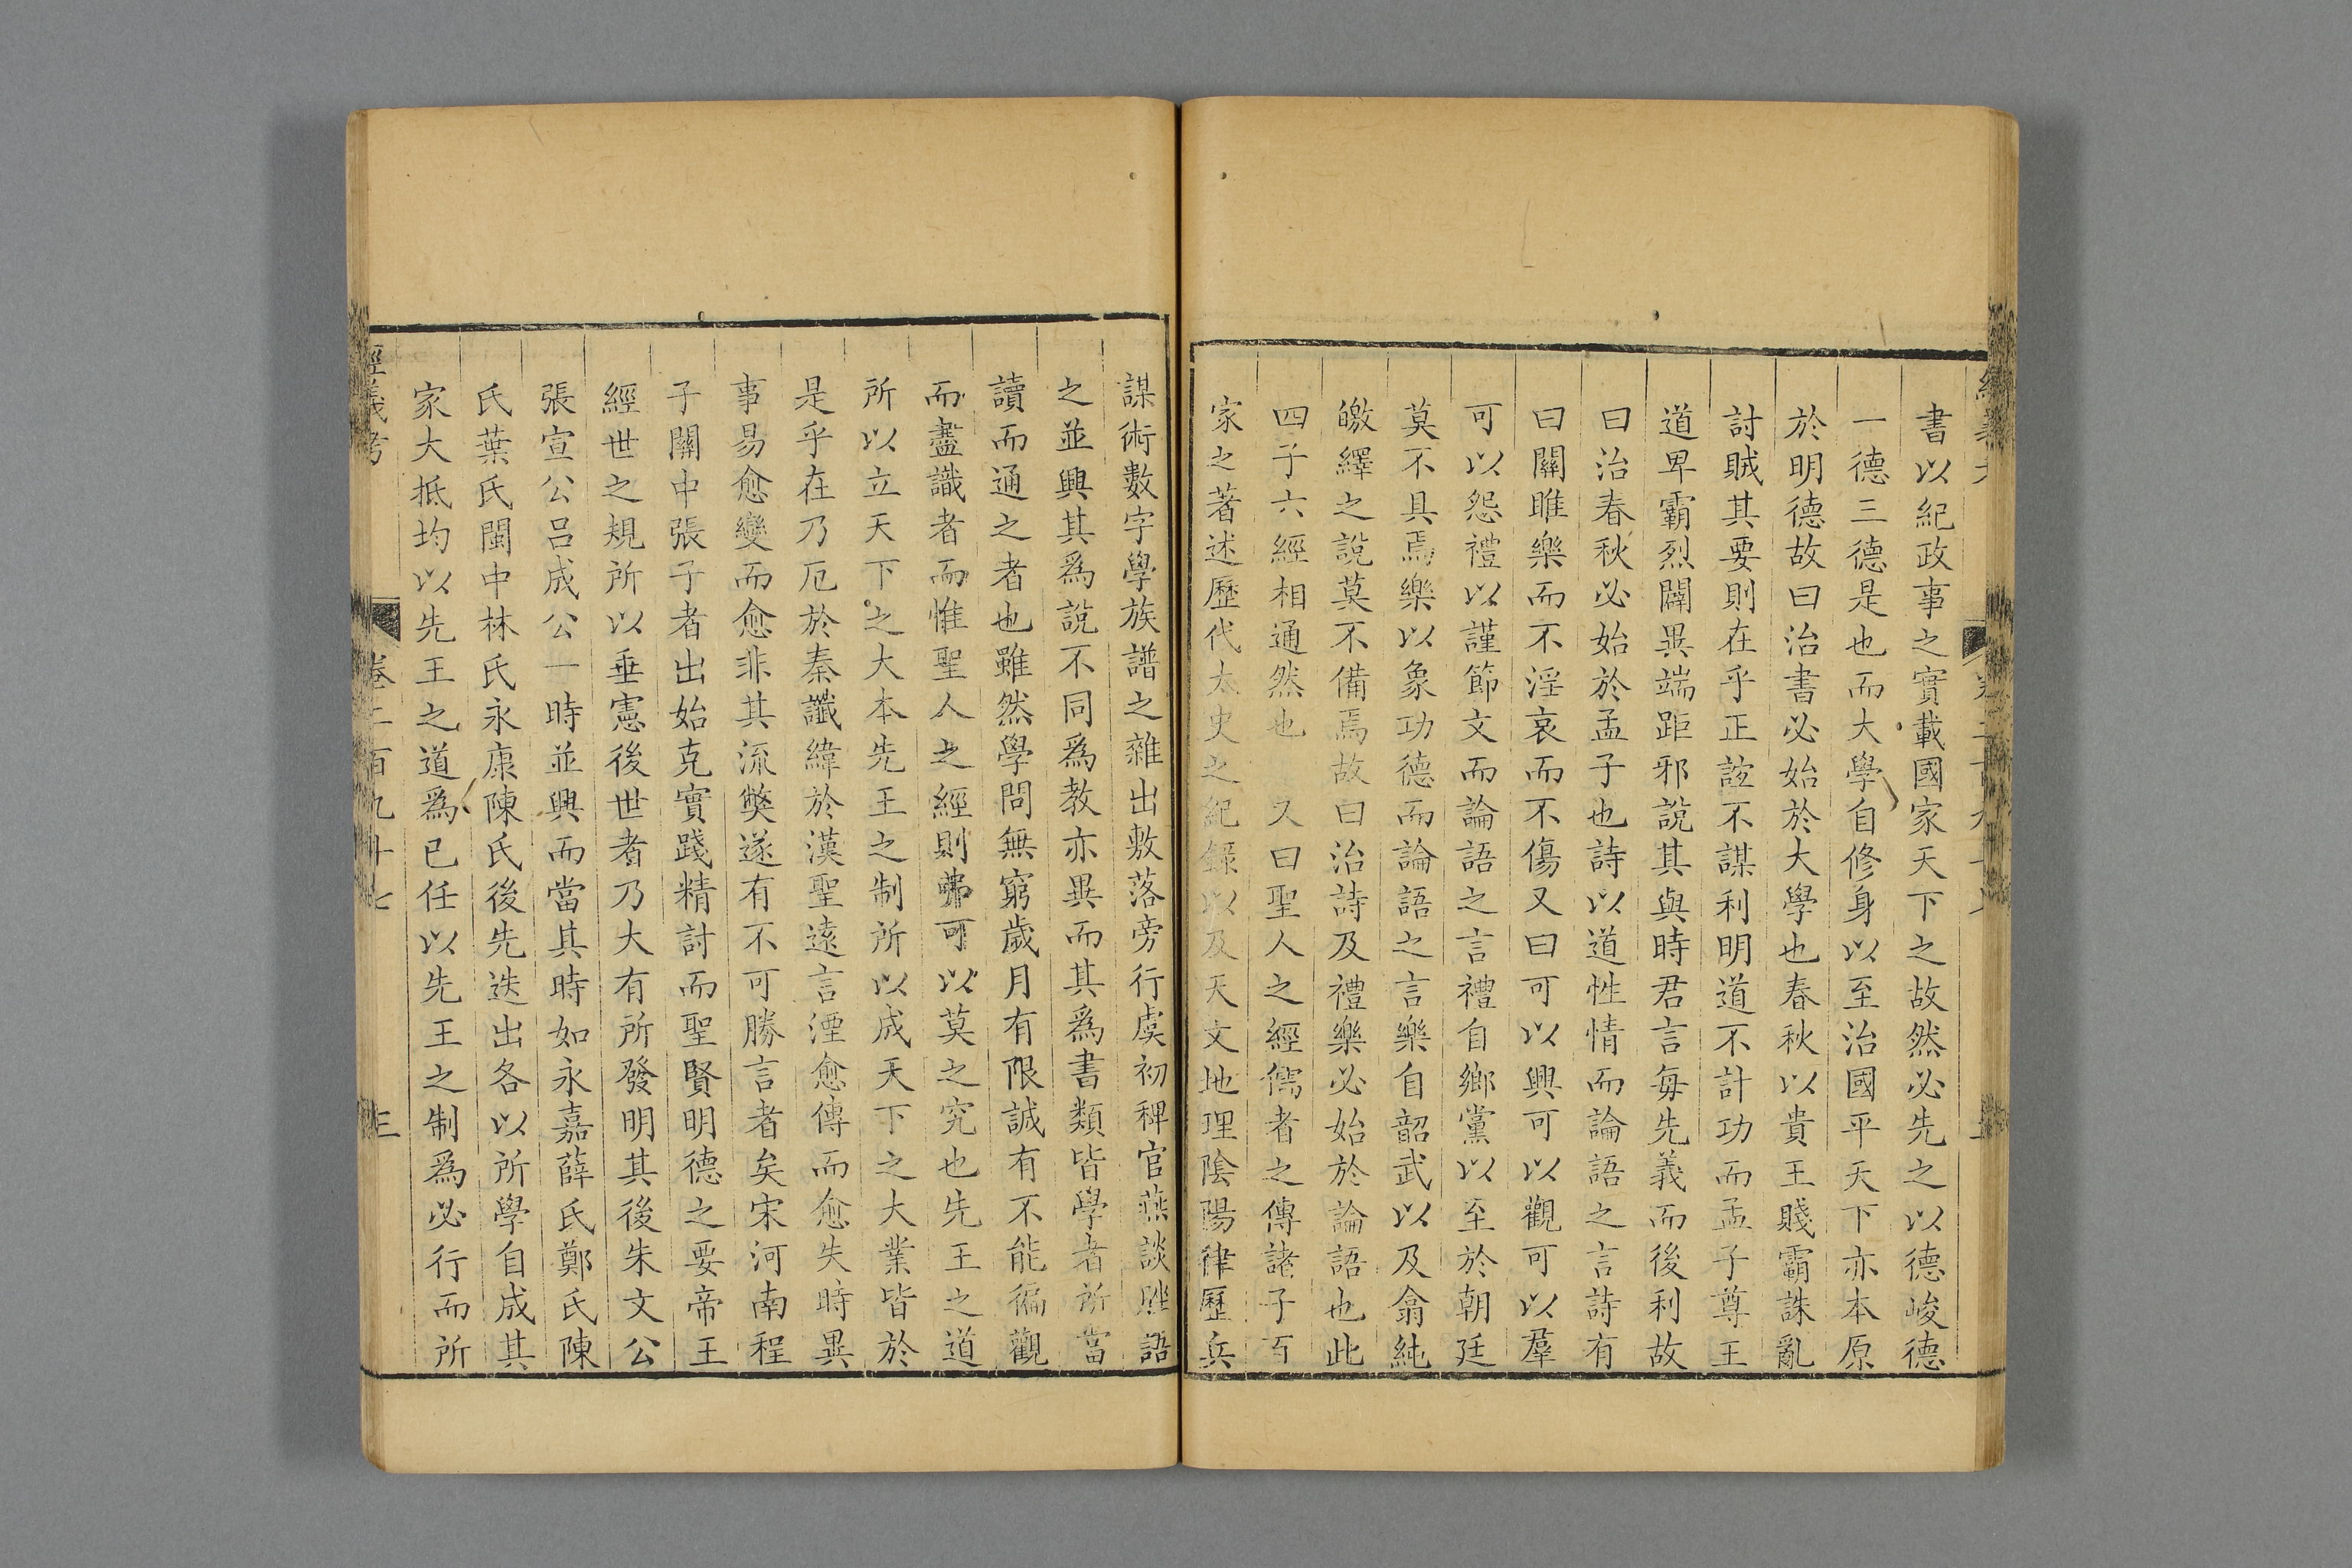 書以紀政事之實載國家天下之故然必先之以德峻德
一德三德是也而大學自修身以至治國平天下亦本原
於明德故曰治書必始於大學也春秋以貴王賤霸誅亂
討賊其要則在乎正誼不謀利明道不計功而孟子尊王
道卑霸烈闢異端距邪說其與時君言每先義而後利故
曰治春秋必始於孟子也詩以道性情而論語之言詩有
曰關雎樂而不淫哀而不傷又曰可以興可以觀可以羣
可以怨禮以謹節文而論語之言禮自鄉黨以至於朝廷
莫不具焉樂以象功德而論語之言樂自韶武以及翕純
皦繹之說莫不備焉故曰治詩及禮樂必始於論語也此
四子六經相通然也 又曰聖人之經儒者之傳諸子百
家之著述歷代太史之紀錄以及天文地理陰陽律歷兵
謀術數字學族譜之雜出敷落旁行虞初稗官燕談脞語
之並興其爲說不同爲教亦異而其爲書類皆學者所當
讀而通之者也雖然學問無窮歲月有限誠有不能徧觀
而盡識者而惟聖人之經則弗可以莫之究也先王之道
所以立天下之大本先王之制所以成天下之大業皆於
是乎在乃厄於秦讖緯於漢聖遠言湮愈傳而愈失時異
事易愈變而愈非其流獘遂有不可勝言者矣宋河南程
子關中張子者出始克實踐精討而聖賢明德之要帝王
經世之規所以垂憲後世者乃大有所發明其後朱文公
張宣公呂成公一時並興而當其時如永嘉薛氏鄭氏陳
氏葉氏閩中林氏永康陳氏後先迭出各以所學自成其
家大抵均以先王之道爲已任以先王之制爲必行而所
經義考 卷二百九十七 三